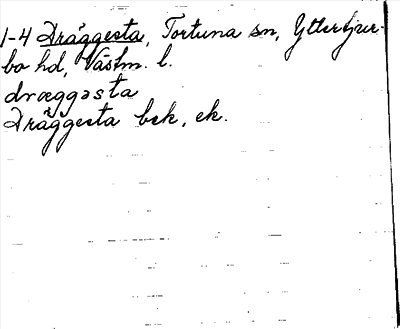 1-4 Dräggesta, Tortuna sn, Yttertjur-
bo hd, Västm. l.
dræggəsta
Dräggesta bek, ek.